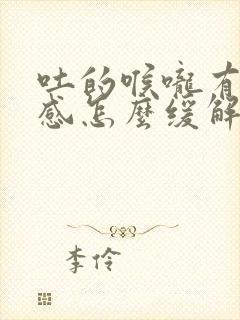 吐的喉嚨有
感怎麼緩解
李伶